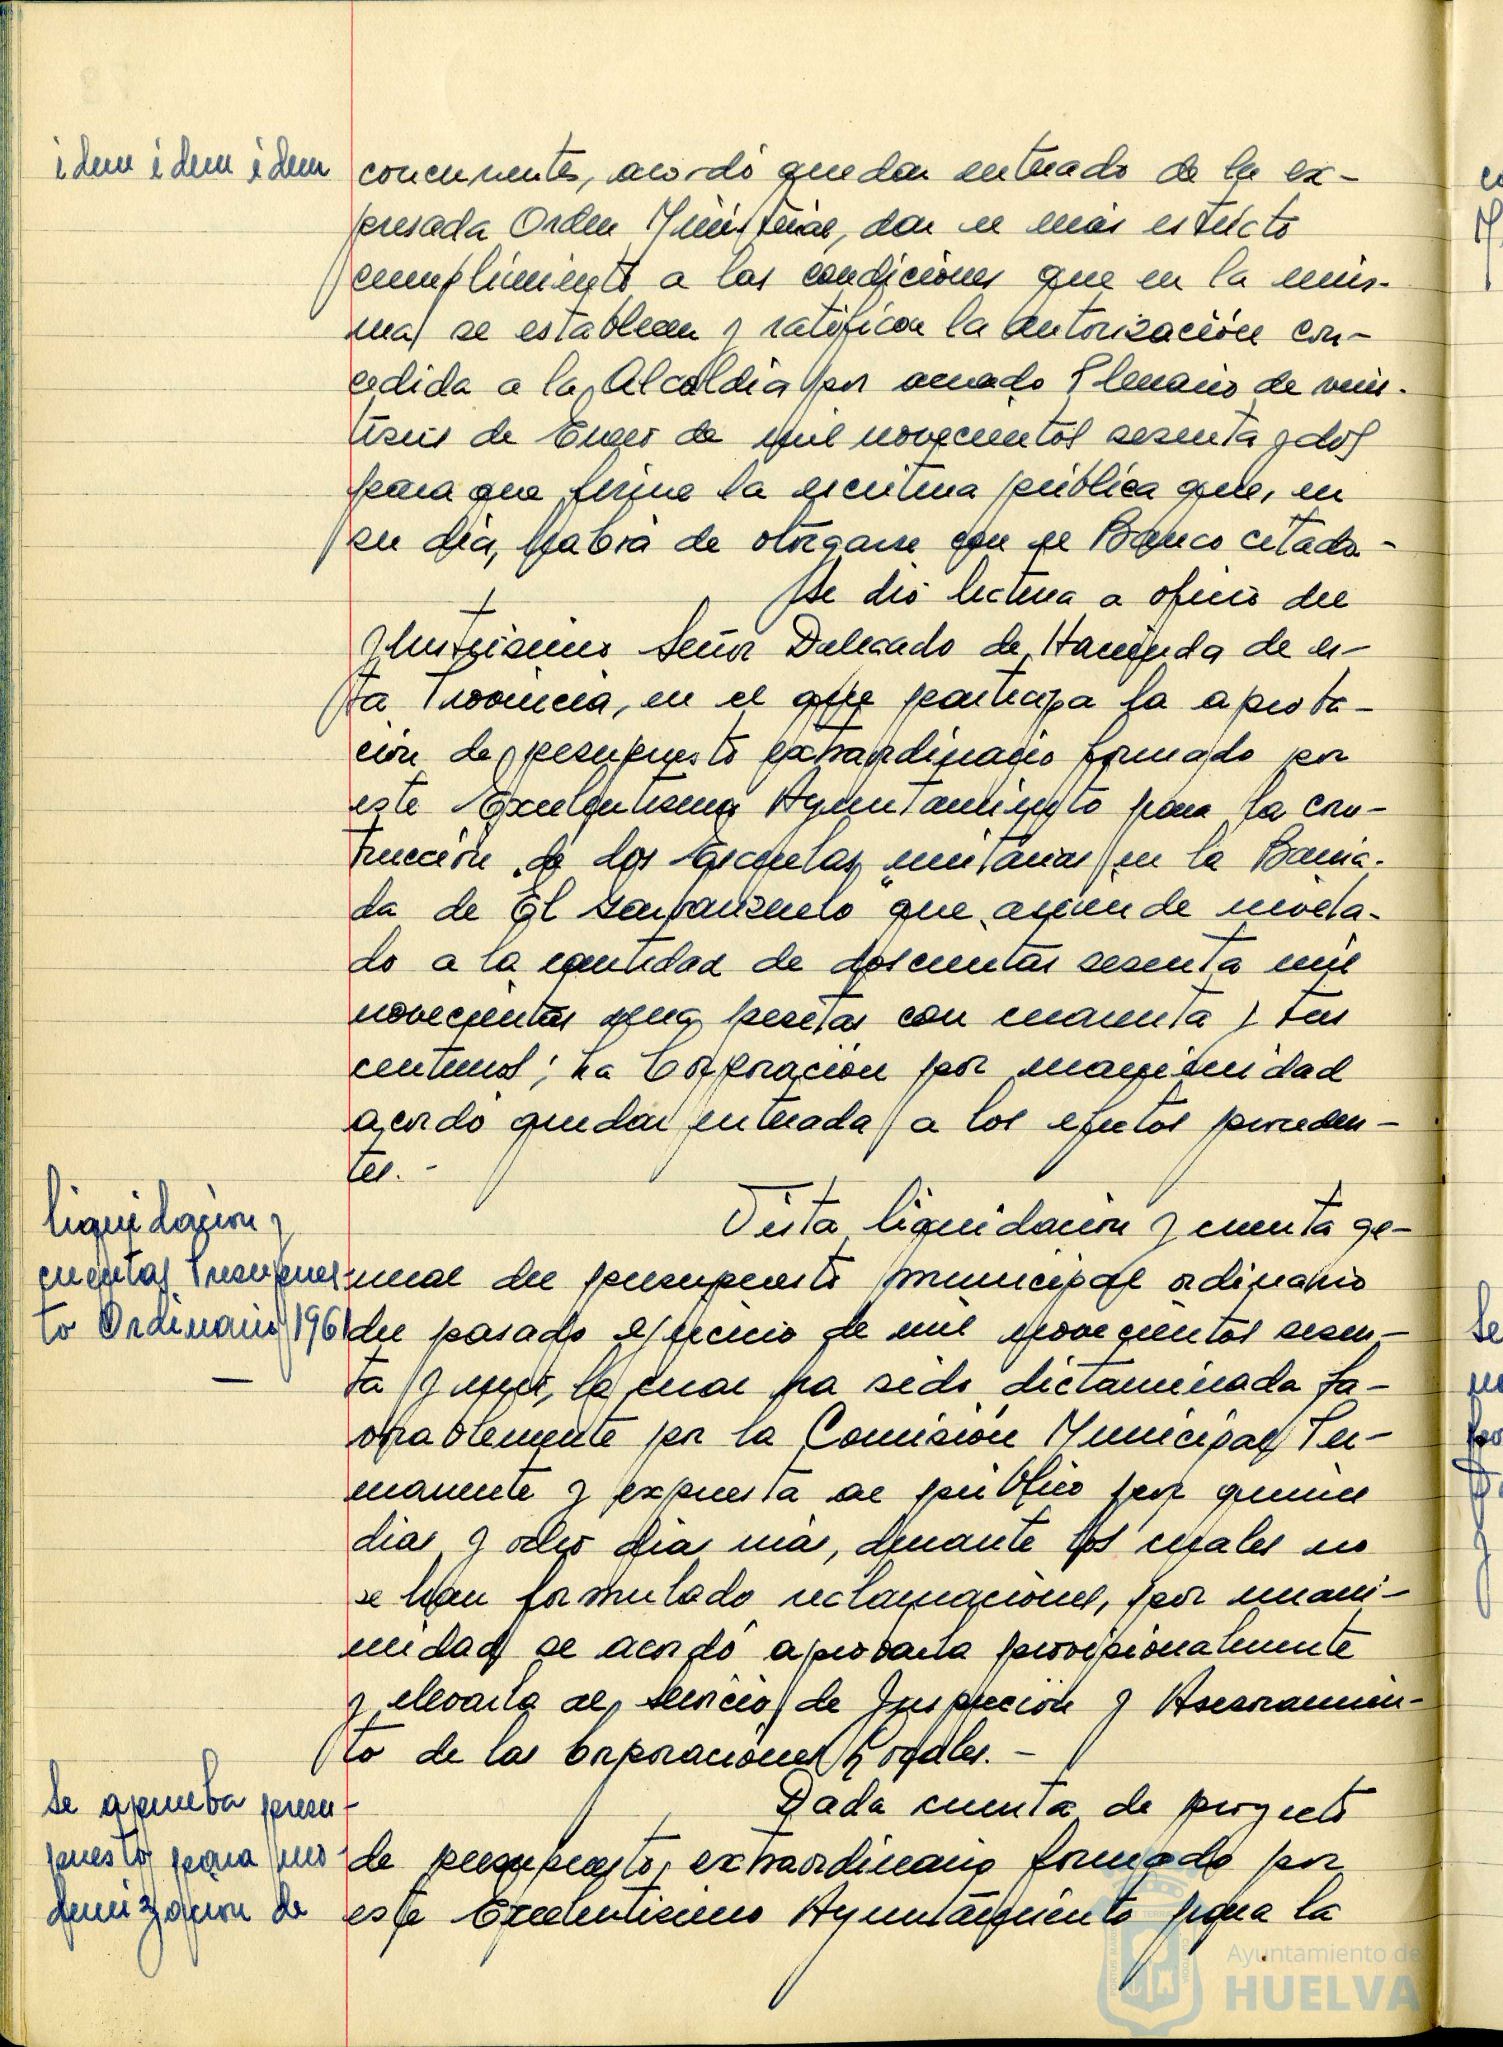 idem idem idem
concurrentes, acordó quedar enterado de la ex-
presada Orden Ministerial, dar el más estricto
cumplimiento a las condiciones que en la mis-
ma se establecen y ratificar la autorización con-
cedida a la Alcaldía por acuerdo Plenario de vein-
tiseis de Enero de mil novecientos sesenta y dos
para que firme la escritura pública que, en
su día, habrá de otorgarse con el Banco citado-
Se dió lectura a oficio del
Ilustrísimo Señor Delegado de Hacienda de es-
ta Provincia, en el que participa la aproba-
ción de presupuesto extraordinario formado por
este Excelentísimo Ayuntamiento para la cons-
trucción de dos Escuelas unitarias en la Barria-
da de El Garbanzuelo que asciende nivela-
do a la cantidad de doscientas sesenta mil
novecientas una pesetas con cuarenta y tres
centimos; La Corporación por unanimidad
acordó quedar enterada a los efectos proceden-
tes.-
liquidación y
cuentas Presupues-
to Ordinario 1961
Vista liquidación y cuenta ge-
neral del presupuesto municipal ordinario
del pasado ejercicio de mil novecientos sesen-
ta y uno, la cual ha sido dictaminada fa-
vorablemente por la Comisión Municipal Per-
manente y expuesta al público por quince
dias y ocho dias más, durante los cuales no
se han formulado reclamaciones, por unani-
midad se acordó aprobarla provisionalmente
y elevarla al Servicio de Inspección y Asesoramien-
to de las Corporaciones Locales.-
Se aprueba presu-
puesto para mo-
dernización de
Dada cuenta de proyecto
de presupuesto extraordinario formado por
este Excelentísimo Ayuntamiento para la
Ayuntamiento de
HUELVA